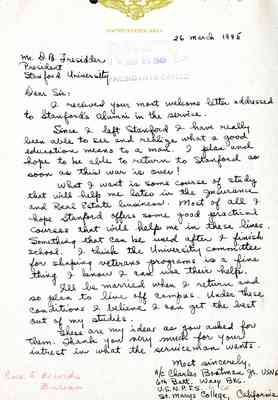 UNITED STATES NAVY
26 March 1945
Mr. D.B. Tresidder
President
Stanford University
PRESIDENT'S OFFICE
Dear Sir:
I received your most welcome letter addressed
to Stanford's Alumni in the service.
Since I left Stanford I have really
been able to see and realize what a good
education means to a man. I plan and
hope to be able to return to Stanford as
soon as this war is over!
What I want is some course of study
that will help me later in the Insurance
and Real Estate business. Most of all I
hope Stanford offers some good practical
courses that will help me in these lines.
Something that can be used after I finish
school. I think the University committee
for shaping veterans programs is a fine
thing & know I can use their help.
I'll be married when I return and
so plan to live off campus. Under these
conditions I believe I can get the best
out of my studies.
These are my ideas as you asked for
them. Thank you very much for your
intrest in what the serviceman wants.
Most sincerely,
A/C Charles Boatman, Jr. USNR
6th Batt. Warp Bks.
U.S.N.P.F.S.
St. Marys College, California
Records
Bureau